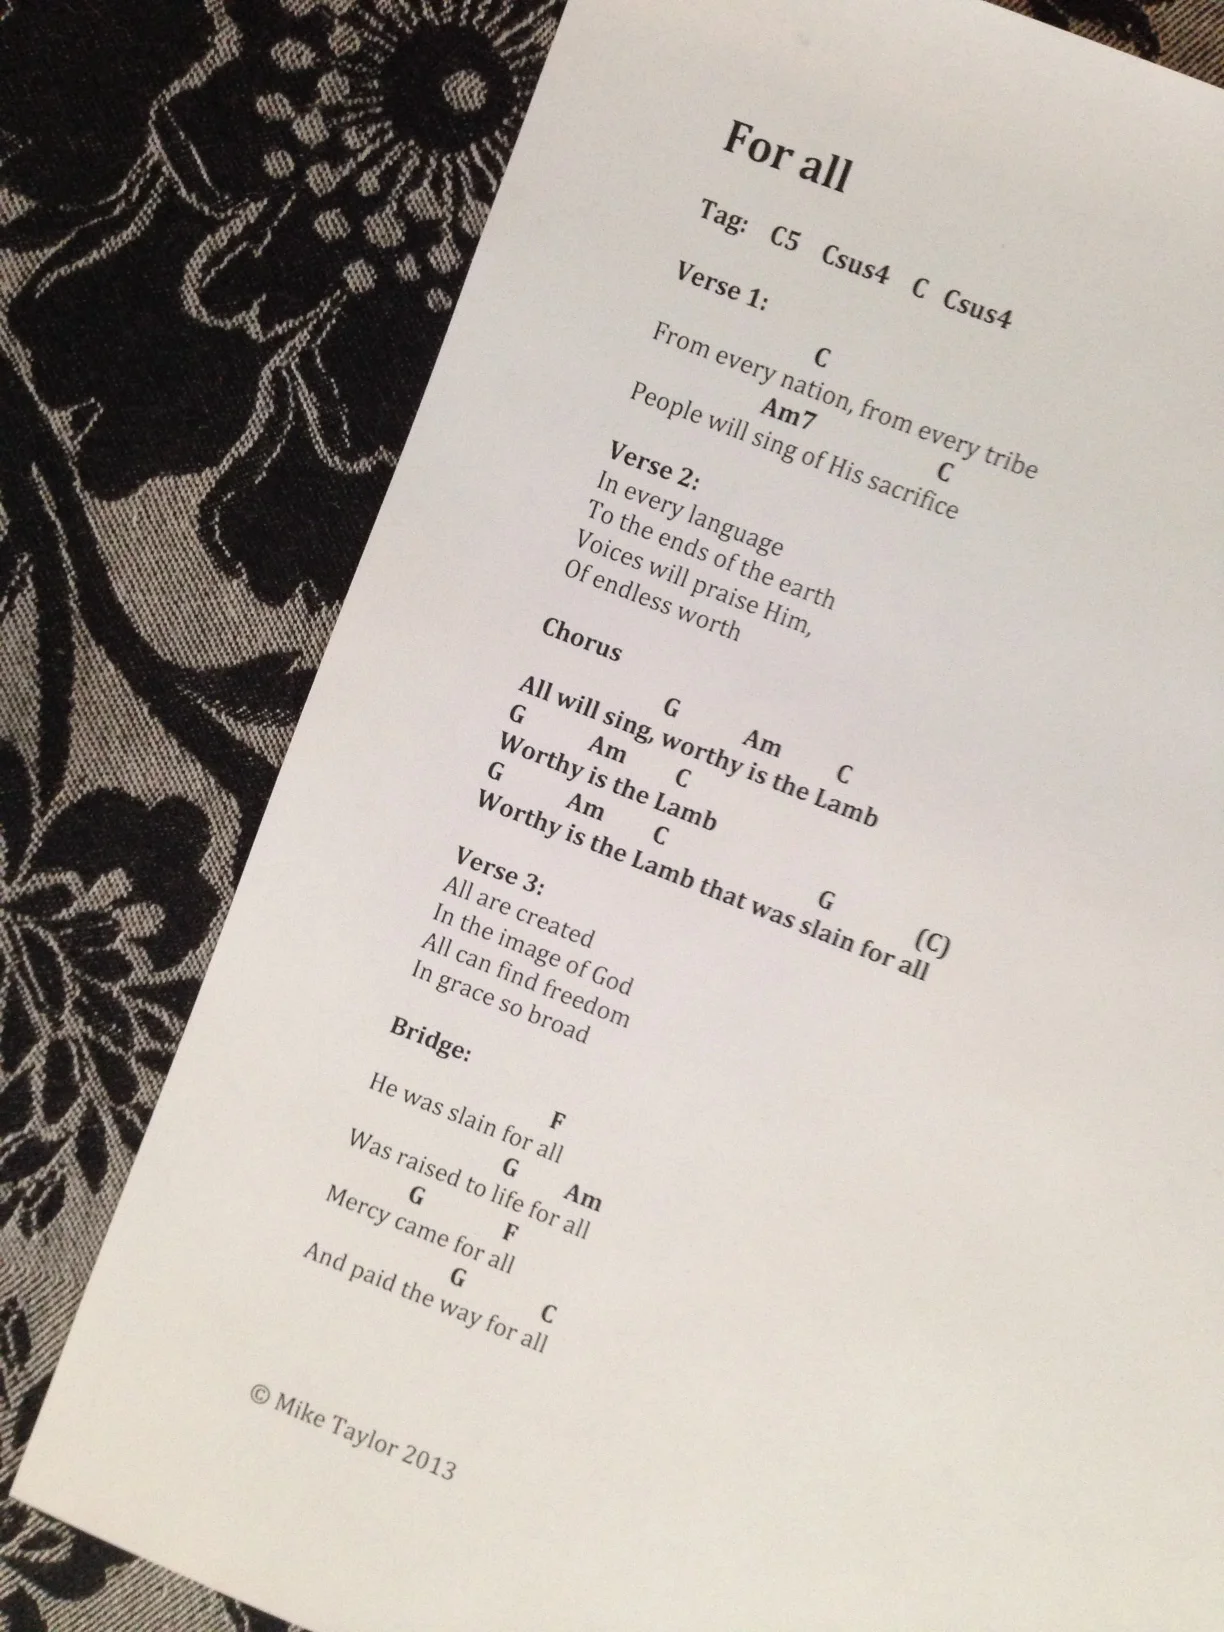 For all
Tag: C5 Csus4 C Csus4
Verse 1:
C
From every nation, from every tribe
Am7 C
People will sing of His sacrifice
Verse 2:
In every language
To the ends of the earth
Voices will praise Him,
Of endless worth
Chorus
G Am C
All will sing, worthy is the Lamb
G Am C
Worthy is the Lamb
G Am C G (C)
Worthy is the Lamb that was slain for all
Verse 3:
All are created
In the image of God
All can find freedom
In grace so broad
Bridge:
F
He was slain for all
G Am
Was raised to life for all
G F
Mercy came for all
G C
And paid the way for all
© Mike Taylor 2013